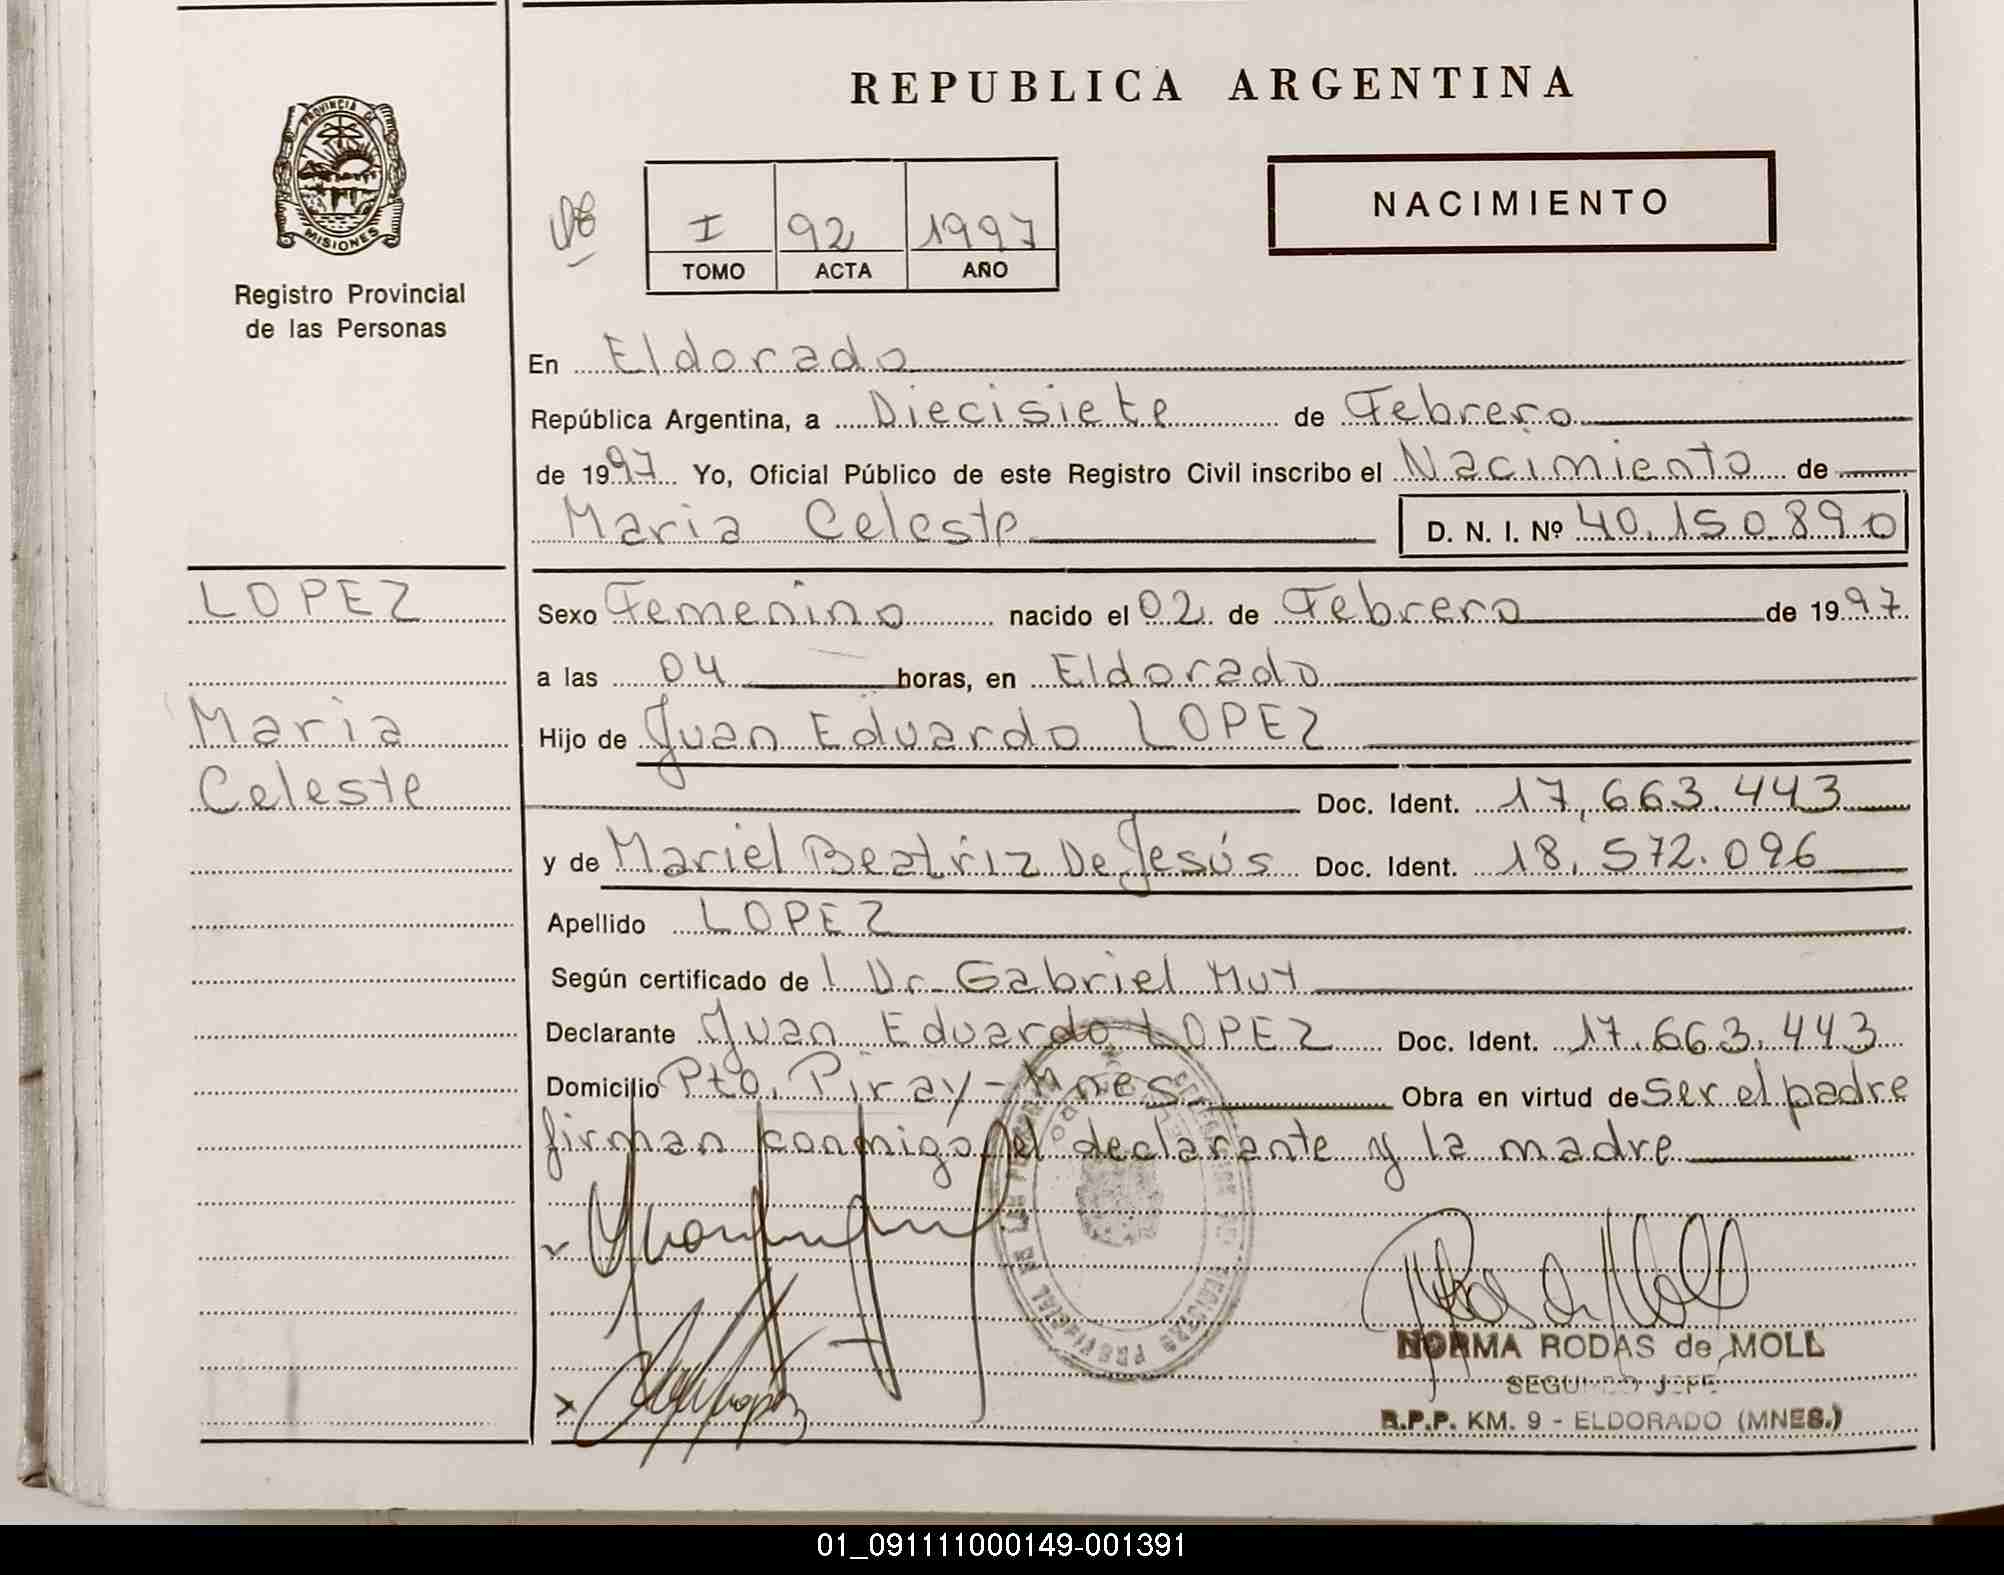 REPUBLICA ARGENTINA
PROVINCIA DE
MISIONES
Registro Provincial
de las Personas
NACIMIENTO
I 92 1997
TOMO ACTA AÑO
En Eldorado
República Argentina, a Diecisiete de Febrero
de 1997 Yo, Oficial Público de este Registro Civil inscribo el Nacimiento de
Maria Celeste D. N. I. Nº 40.150.890
LOPEZ
Maria
Celeste
Sexo Femenino nacido el 02 de Febrero de 1997.
a las 04 horas, en Eldorado
Hijo de Juan Eduardo LOPEZ
Doc. Ident. 17.663.443
y de Mariel Beatriz De Jesús Doc. Ident. 18.572.096
Apellido LOPEZ
Según certificado de l Dr. Gabriel Muy
Declarante Juan Eduardo LOPEZ Doc. Ident. 17.663.443
Domicilio Pto. Piray - Mnes Obra en virtud de Ser el padre
firman conmigo el declarante y la madre
NORMA RODAS de MOLL
SEGUNDO JEFE
R.P.P. KM. 9 - ELDORADO (MNES.)
01_091111000149-001391